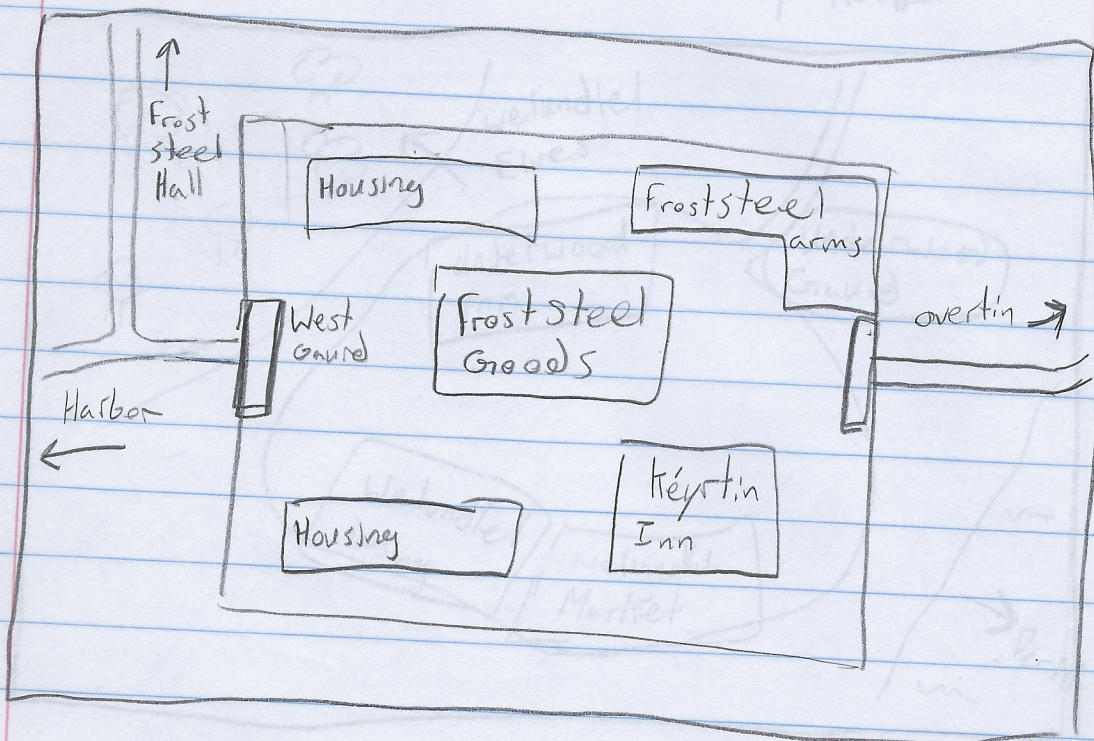 Frost
steel
Hall
Housing
Froststeel
arms
West
Gaurd
Froststeel
Goods
overtin
Harbor
Housing
Kéyrtin
Inn